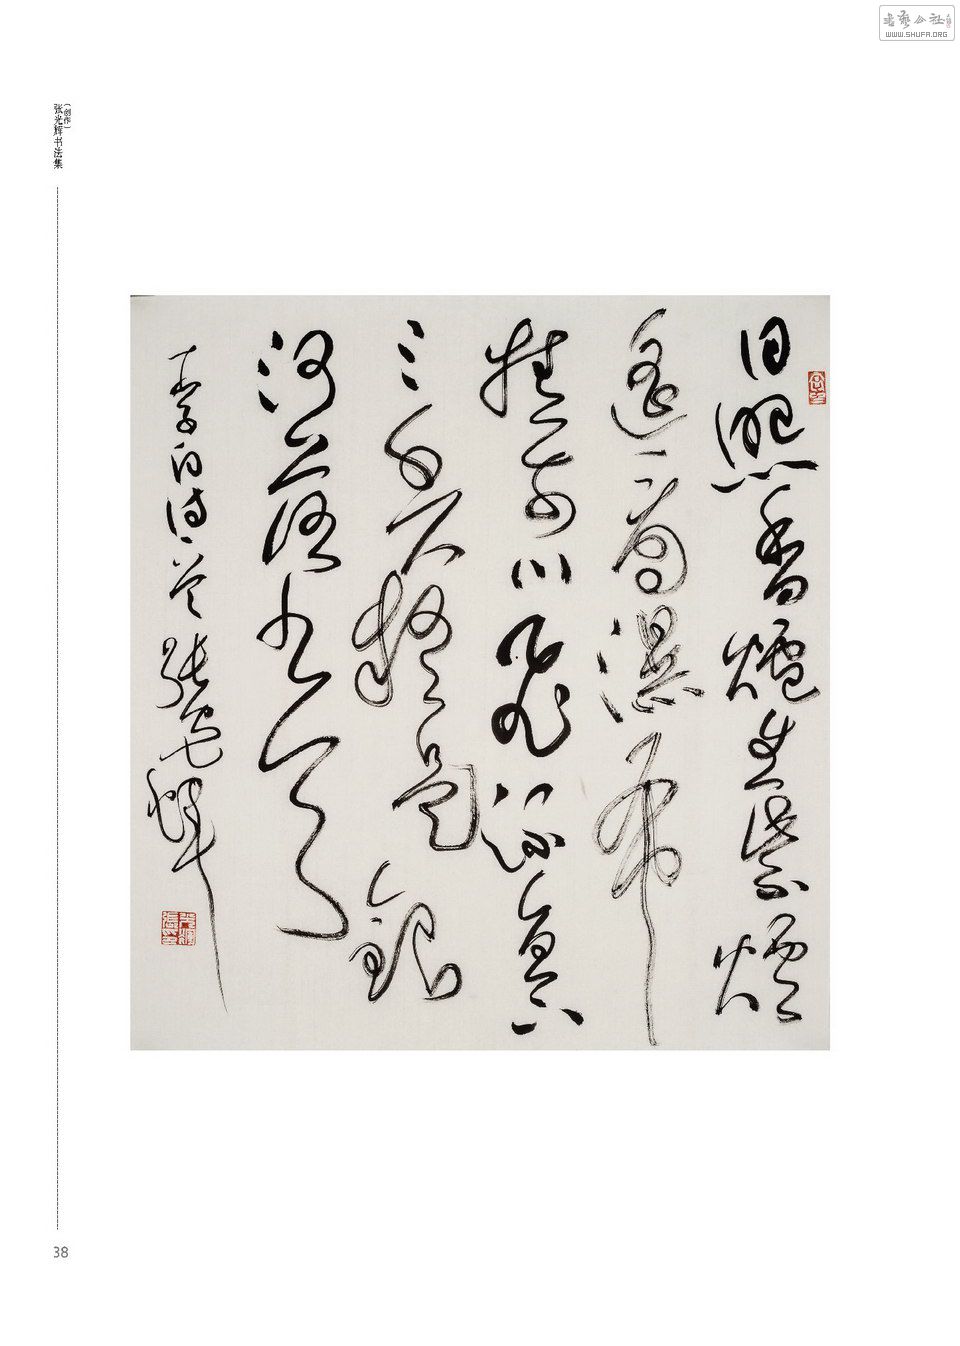 書藝公社
WWW.SHUFA.ORG
张光辉书法集
（创作）
日照香爐生紫煙
遥看瀑布
挂前川飛流直下
三千尺疑是銀
河落九天
李白诗一首 張光輝
38